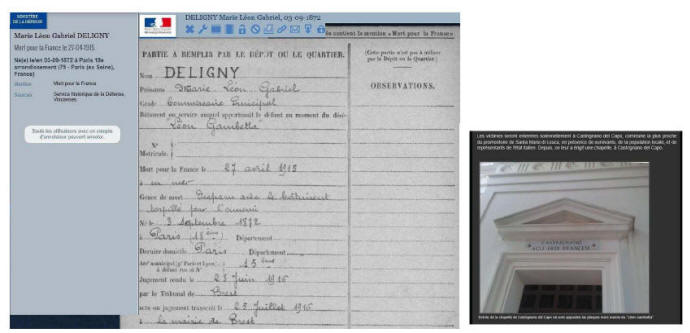 MINISTÈRE
DE LA DÉFENSE
Marie Léon Gabriel DELIGNY
Mort pour la France le 27-04-1915
Né(e) le/en 03-09-1872 à Paris 18e
arrondissement (75 - Paris (ex Seine),
France)
Mention Mort pour la France
Sources Service historique de la Défense,
Vincennes
Seuls les utilisateurs avec un compte
d'annotateur peuvent annoter.
DELIGNY Marie Léon Gabriel, 03-09-1872
contient la mention « Mort pour la France »
PARTIE A REMPLIR PAR LE DÉPÔT OU LE QUARTIER.
Nom DELIGNY
Prénoms Marie Léon Gabriel
Grade Commissaire Principal
Bâtiment ou service auquel appartenait le défunt au moment du décès
Léon Gambetta
N°
Matricule.
Mort pour la France le 27 avril 1915
à en mer
Genre de mort Disparu avec le bâtiment
torpillé par l'ennemi
Né le 3 septembre 1872
à Paris (18ème) Département
Dernier domicile Paris Département
Arrt municipal (pr Paris et Lyon) 15ème
à défaut rue et N°
Jugement rendu le 28 Juin 1916
par le Tribunal de Brest
acte ou jugement transcrit le 25 Juillet 1916
à la mairie de Brest
(Cette partie n'est pas à utiliser
par le Dépôt ou le Quartier)
OBSERVATIONS.
Les victimes seront enterrées solennellement à Castrignano del Capo, commune la plus proche
du promontoire de Santa Maria di Leuca, en présence de survivants, de la population locale, et de
représentants de l'état italien. Depuis, on leur a érigé une chapelle, à Castrignano del Capo.
CASTRIGNANO
AGLI EROI FRANCESI
Entrée de la chapelle de Castrignano del Capo où sont apposées les plaques